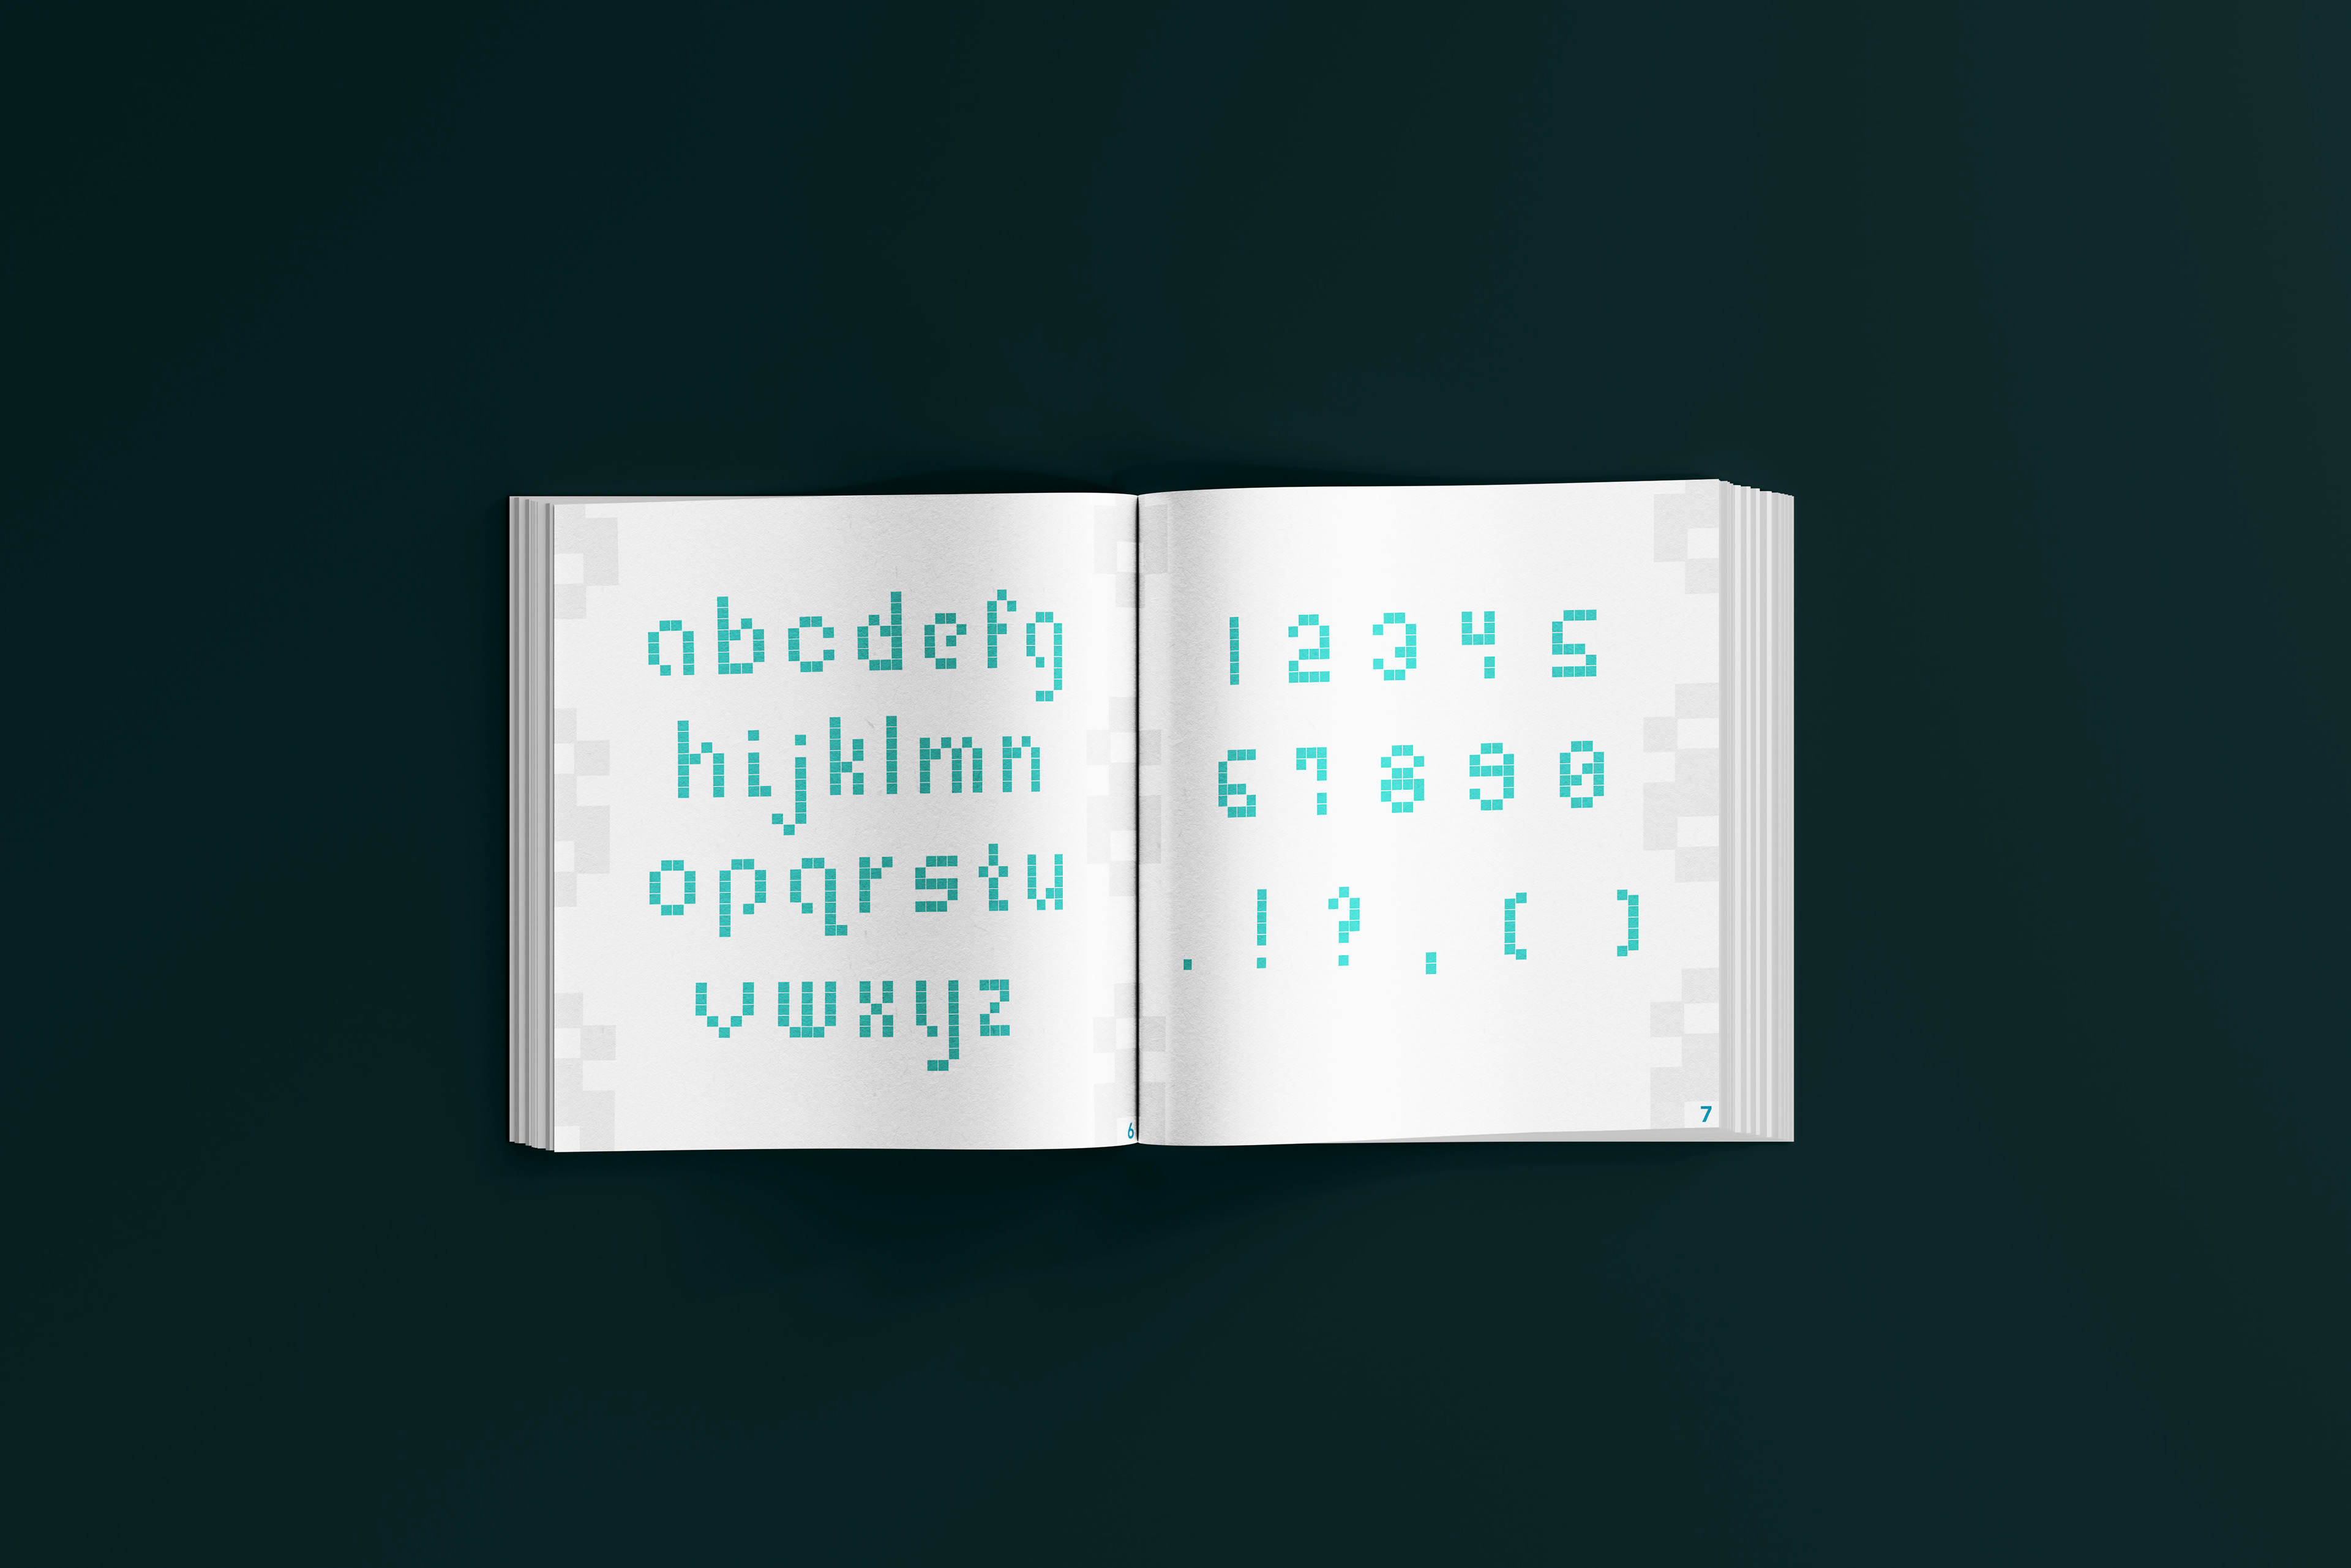 abcdefg
hijklmn
opqrstu
vwxyz
6
1 2 3 4 5
6 7 8 9 0
. ! ? , ( )
7